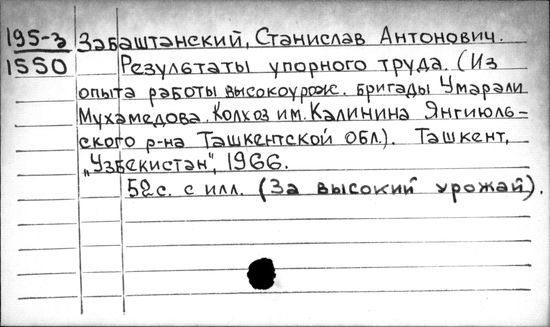 195-з Забаштанский, Станислав Антонович.
1550 Результаты упорного труда. (Из
опыта работы высокоурож. бригады Умарали
Мухамедова. Колхоз им. Калинина Янгиюль-
ского р-на Ташкентской обл.). Ташкент,
„Узбекистан", 1966.
52 с. с илл. (За высокий урожай).